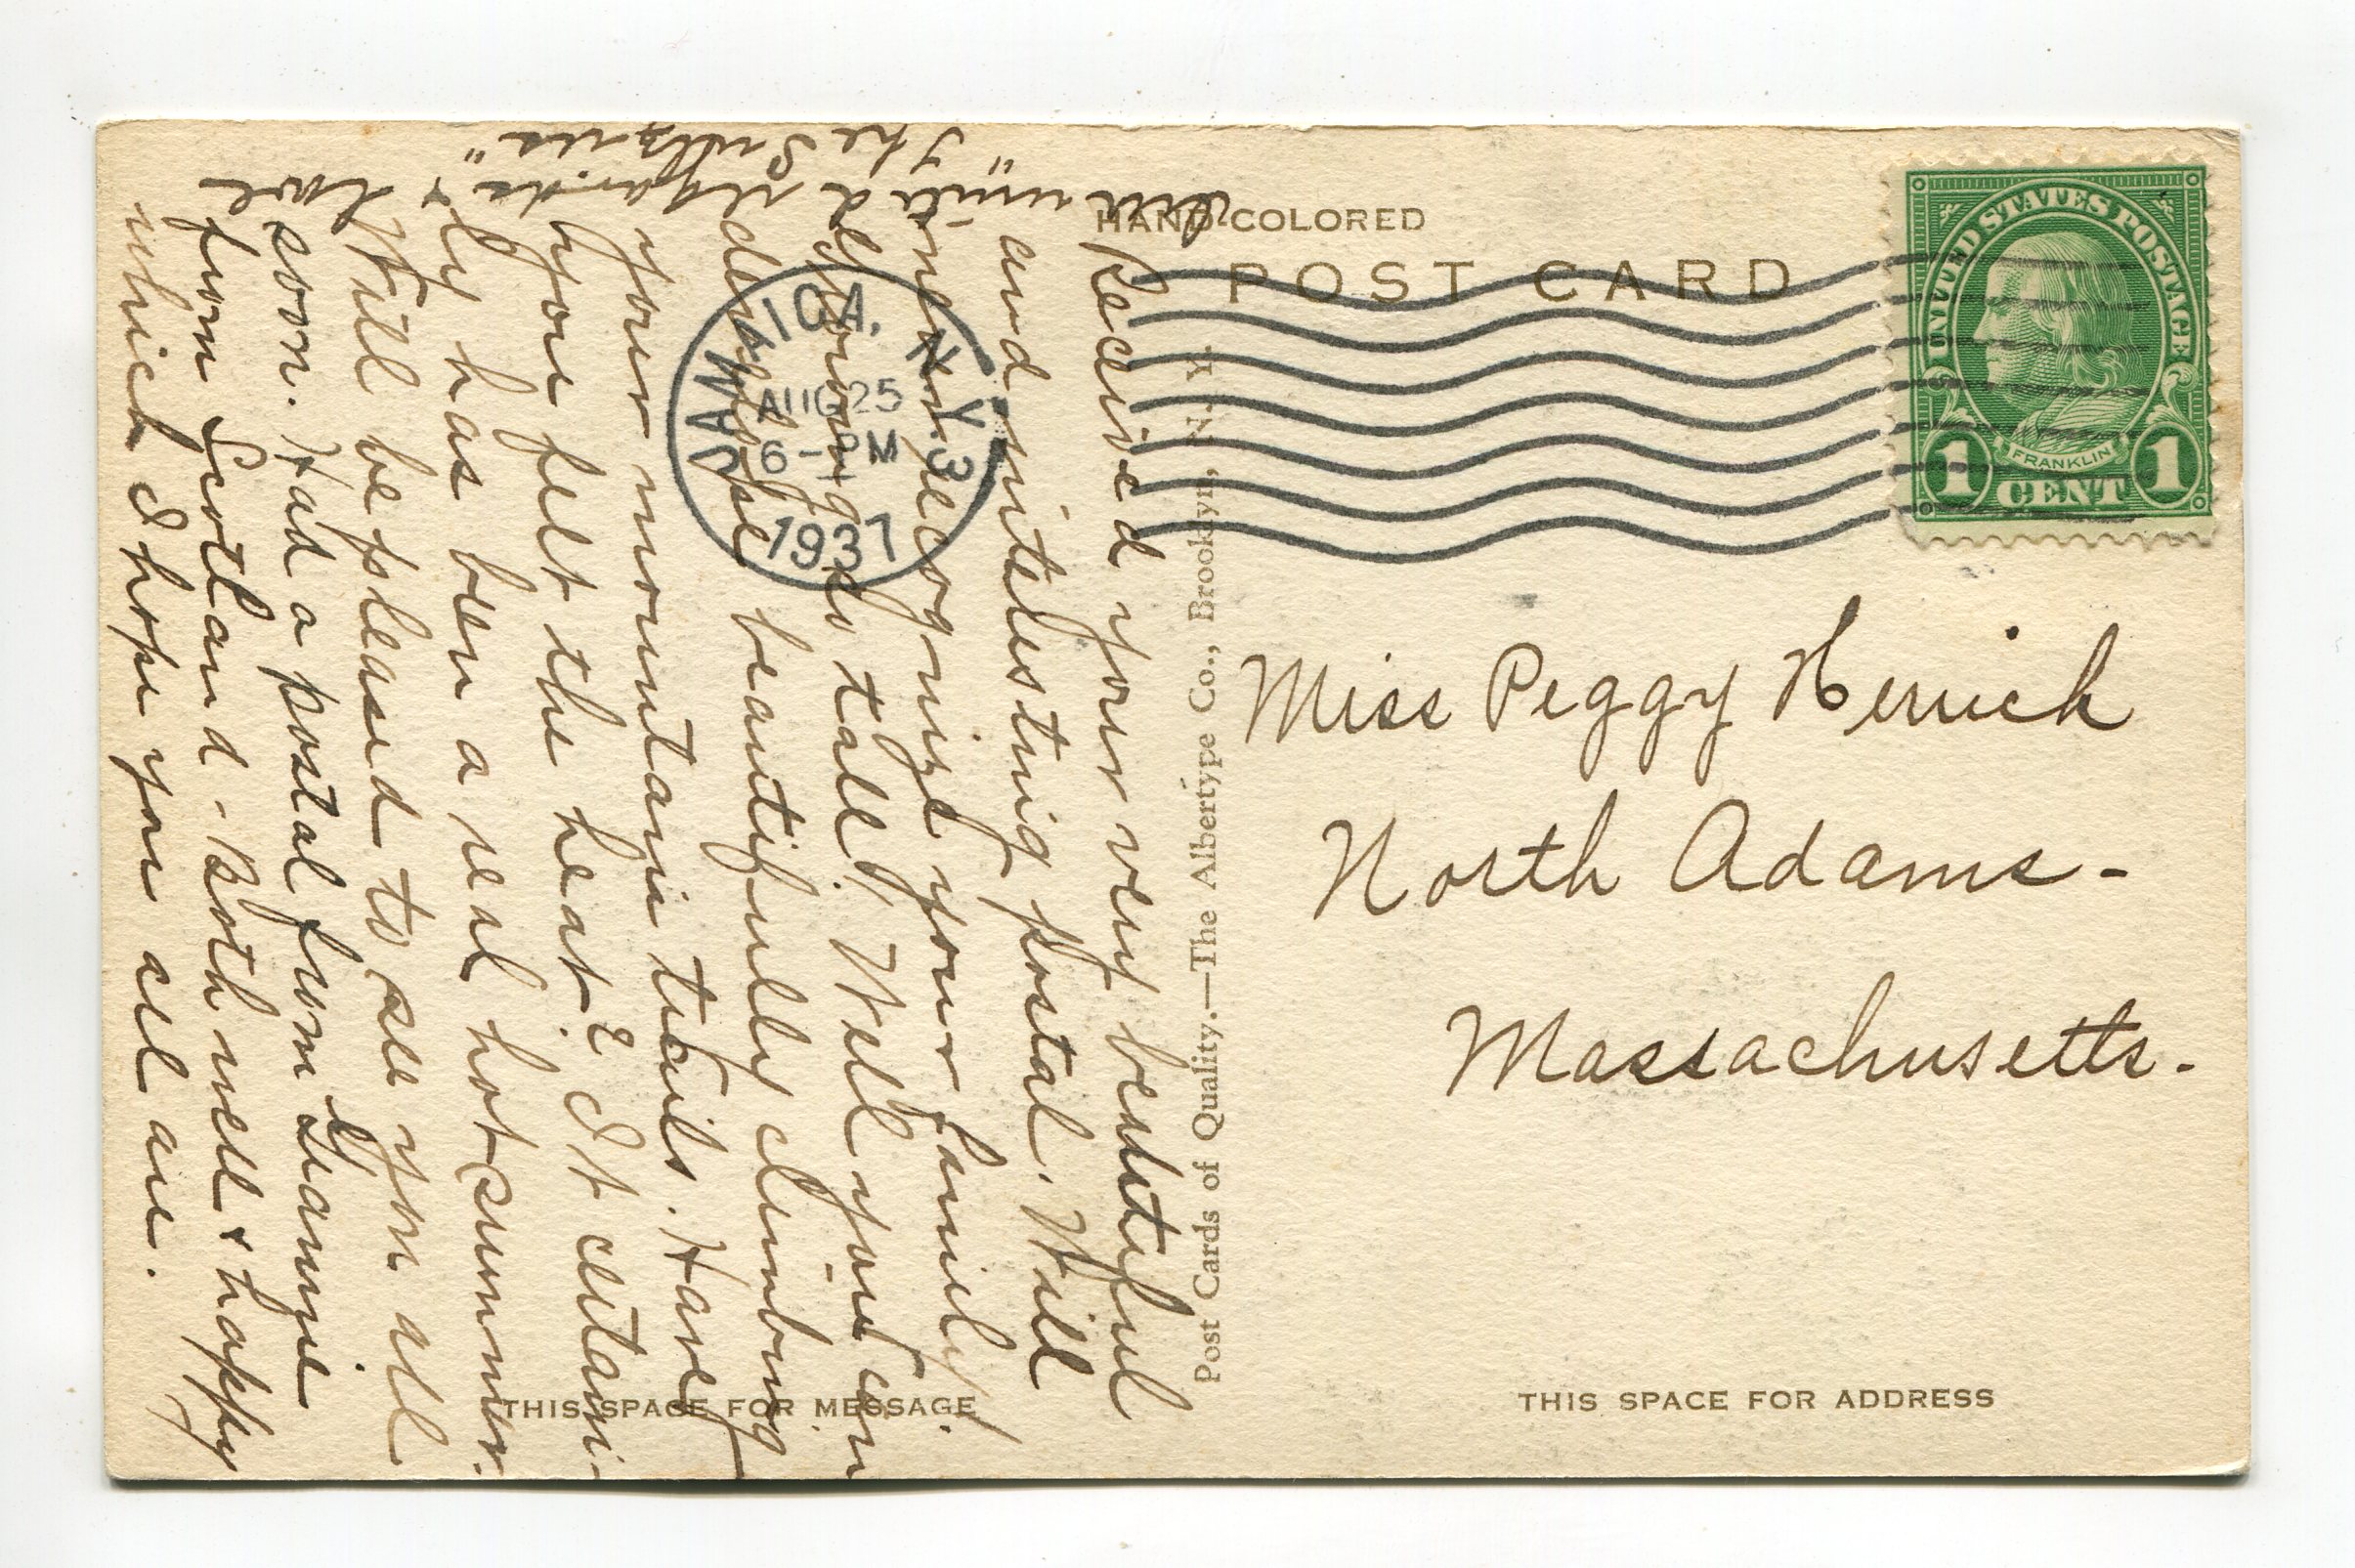 HAND-COLORED
POST CARD
UNITED STATES POSTAGE
FRANKLIN
1 CENT 1
JAMAICA, N.Y. 3
AUG 25
6-PM
1937
Miss Peggy Herrick
North Adams-
Massachusetts.
THIS SPACE FOR ADDRESS
Post Cards of Quality.—The Albertype Co., Brooklyn, N. Y.
THIS SPACE FOR MESSAGE
Received your very beautiful
and interesting postal. Will
ever recognize your family.
growing so tall. Well you can
describe beautifully climbing
your mountain trails. Have
you felt the heat? It certain-
ly has been a real hot summer.
Will be pleased to see you all
soon. Had a postal from
from Scotland - Both well & happy
which I hope you all are.
united regards & love
"The